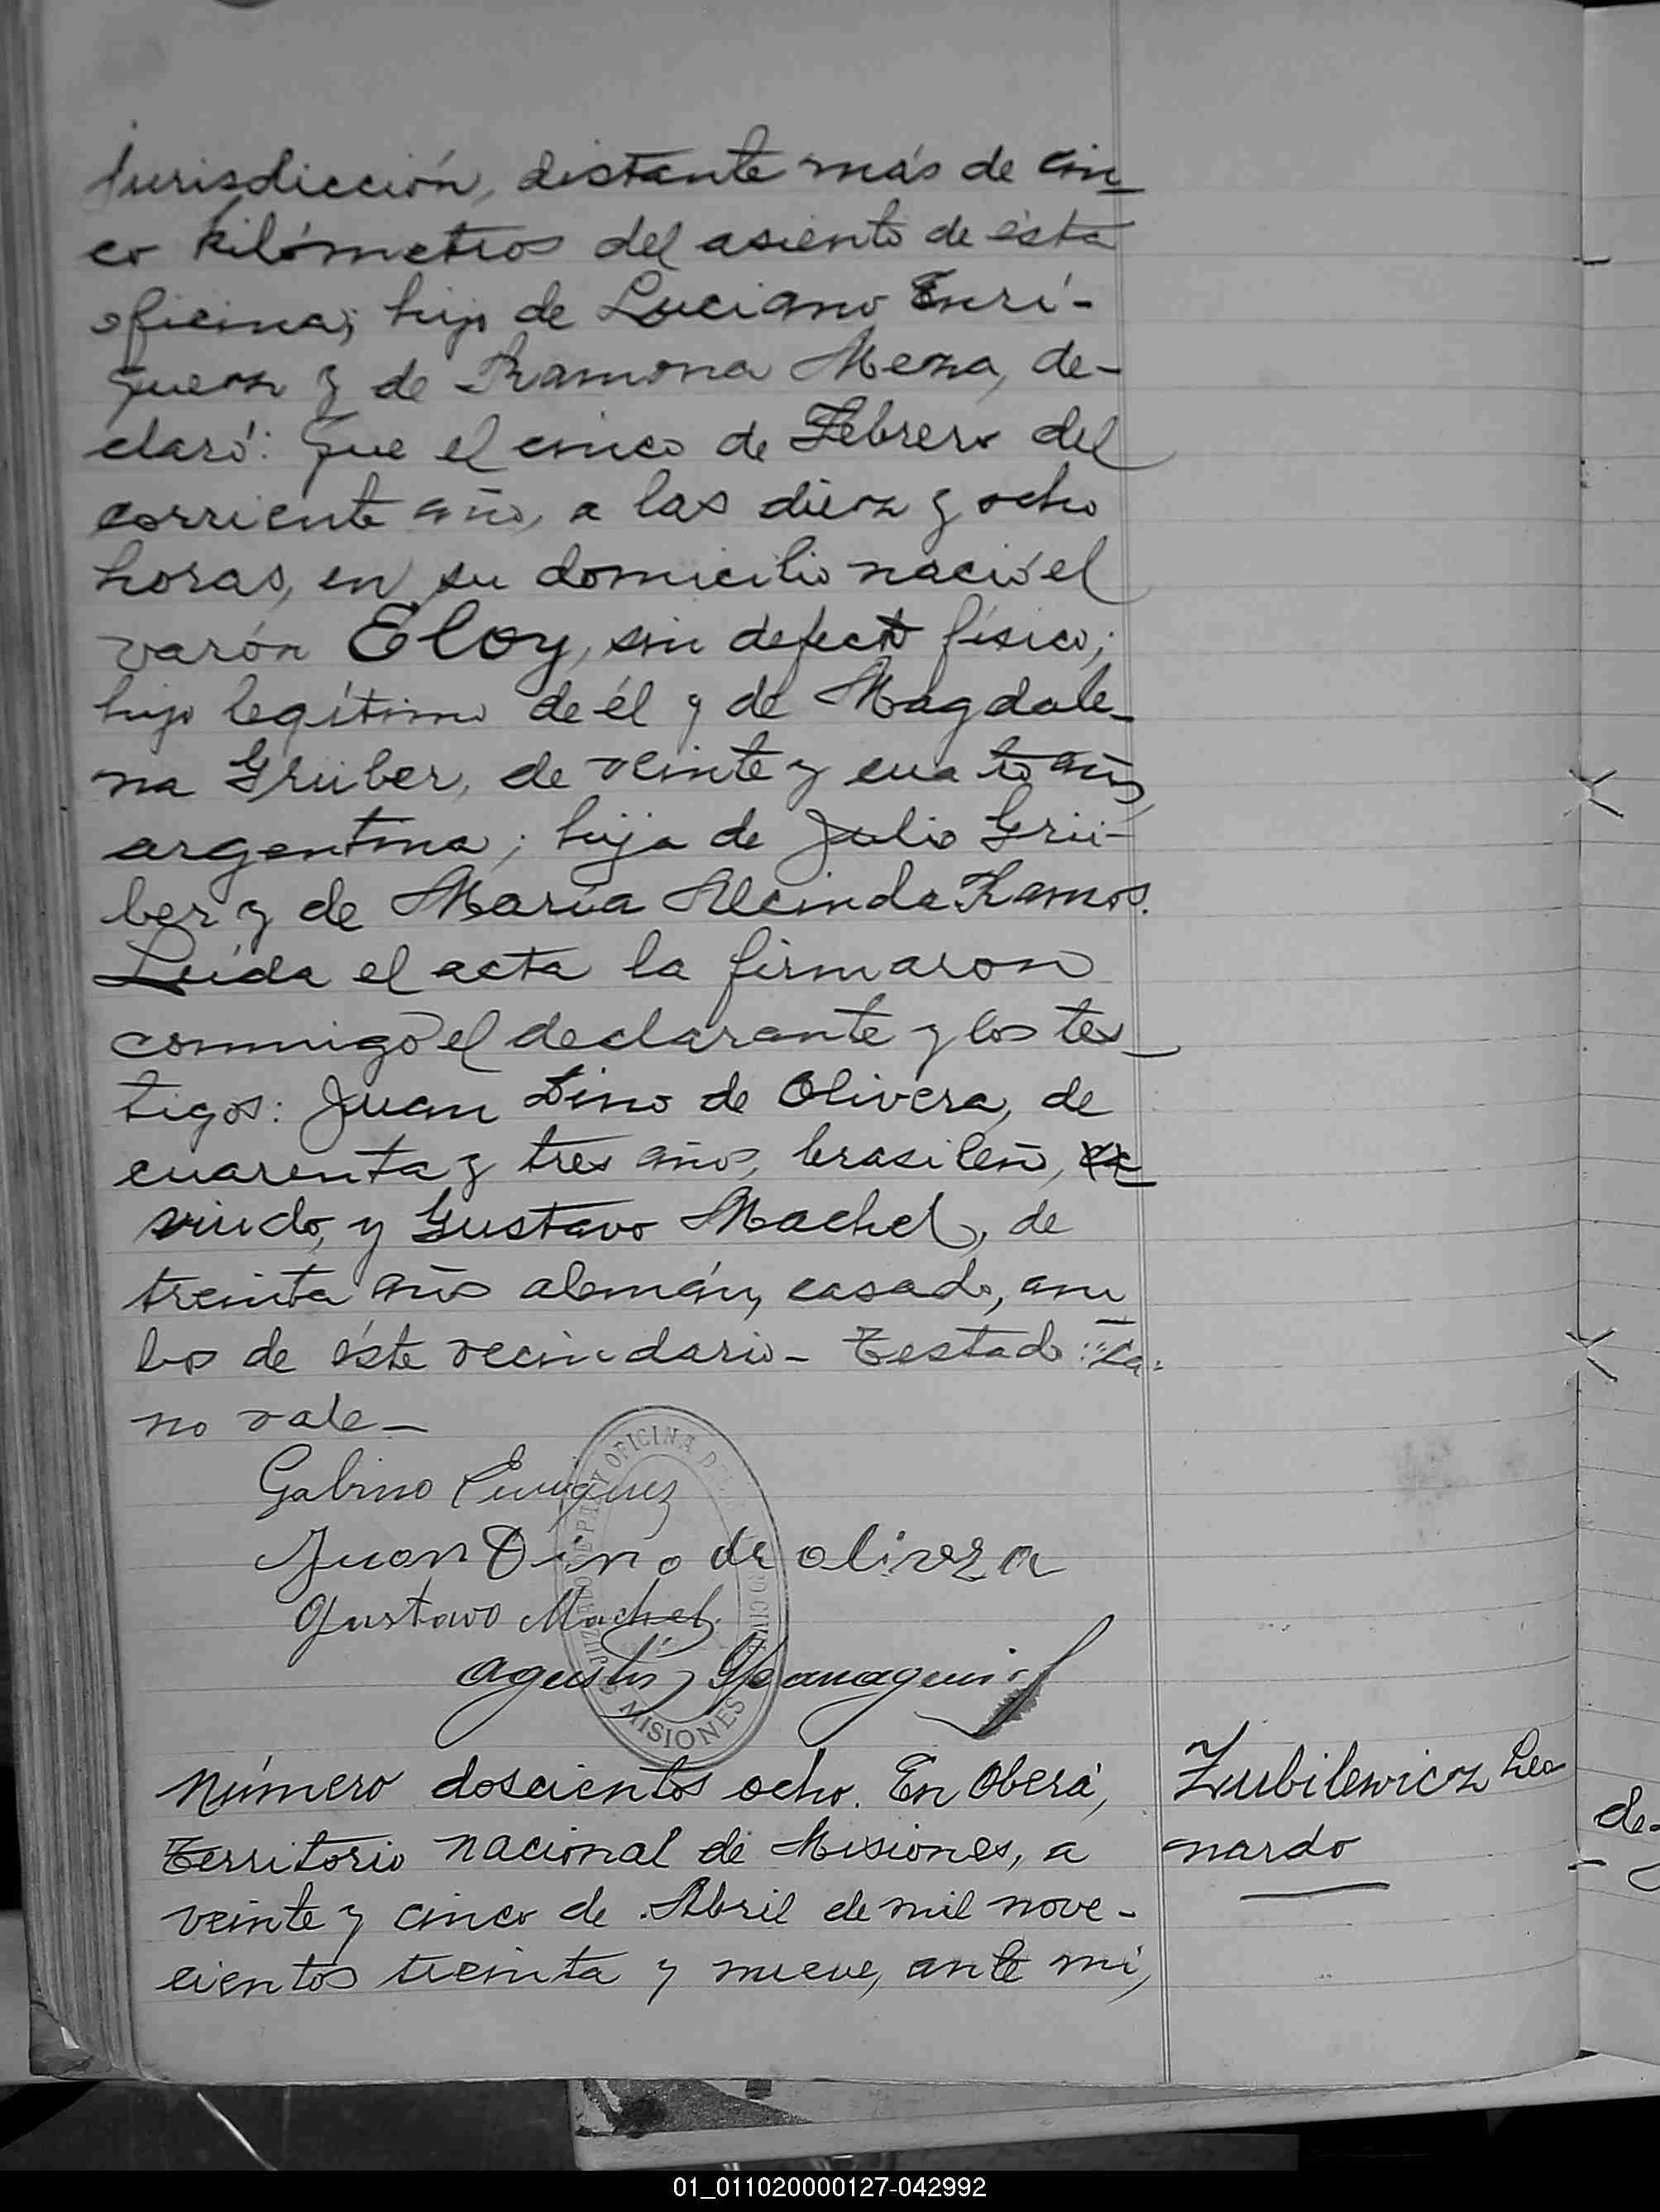 Jurisdicción, distante más de cin-
co kilómetros del asiento de ésta
oficina; hijo de Luciano Enrí-
quez y de Ramona Meza, de-
claró: Que el cinco de Febrero del
corriente año, a las diez y ocho
horas, en su domicilio nació el
varón Eloy, sin defecto físico;
hijo legítimo de él y de Magdale-
na Grüber, de veinte y cuatro años,
argentina; hija de Julio Grü-
ber y de María Alcinda Ramos.
Leída el acta la firmaron
conmigo el declarante y los tes-
tigos: Juan Dino de Olivera, de
cuarenta y tres años, brasileño,
viudo, y Gustavo Machel, de
treinta años alemán, casado, am-
bos de éste vecindario- Testado:
no vale-
Gabino Enriquez
Juan Dino de olivera
Gustavo Machel
Agustín
JUZGADO DE PAZ Y OFICINA DEL CIVIL
MISIONES
Número doscientos ocho. En Oberá,
Territorio Nacional de Misiones, a
veinte y cinco de Abril de mil nove-
cientos treinta y nueve, ante mí,
Zubilewicz Leo
nardo
de-
01_011020000127-042992